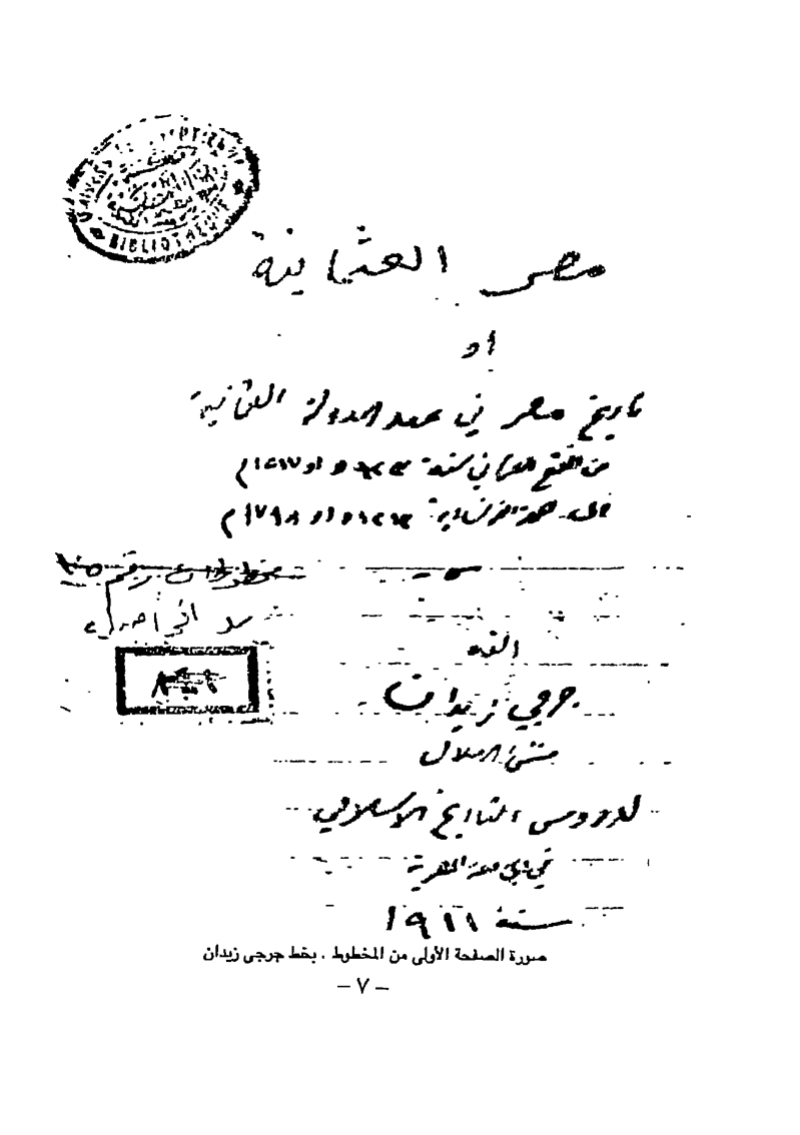 مصر العثمانية
أو
تاريخ مصر في عهد الدولة العثمانية
من الفتح العثماني سنة ٩٢٣ هـ او ١٥١٧م
الى الحملة الفرنساوية ١٢١٣ هـ او ١٧٩٨م
مخطوطات رقم
الفه
جرجي زيدان
منشئ الهلال
لدروس التاريخ الاسلامي
في الجامعة المصرية
سنة ١٩١١
BIBLIOTHEQUE
صورة الصفحة الأولى من المخطوط ، بخط جرجى زيدان
– ٧ –